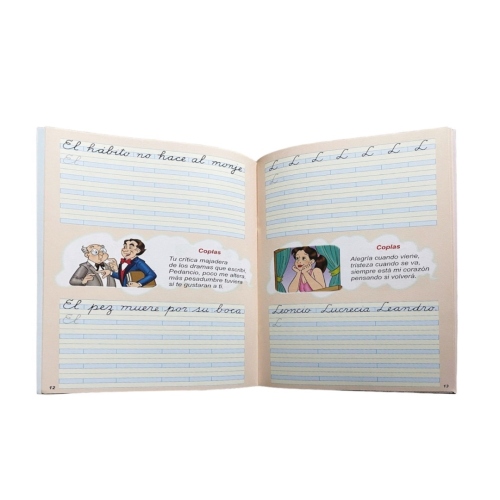 El hábito no hace al monje
El
Coplas
Tu crítica majadera
de los dramas que escribí,
Pedancio, poco me altera,
más pesadumbre tuviera
si te gustaran a ti.
El pez muere por su boca
El
12
L L L L L L L
L
Coplas
Alegría cuando viene,
tristeza cuando se va,
siempre está mi corazón
pensando si volverá.
Leoncio Lucrecia Leandro
L
13